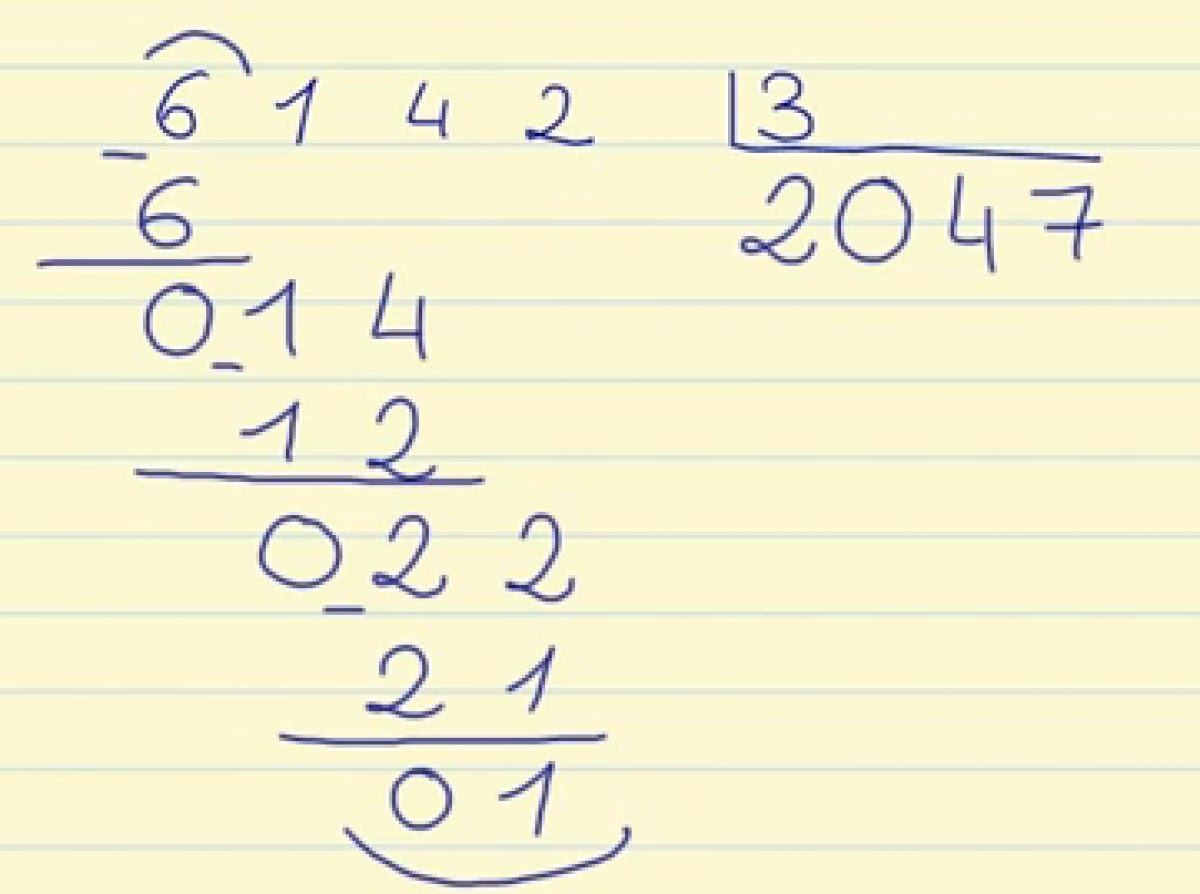 6142 3
- 2047
6
014
-
12
022
-
21
01